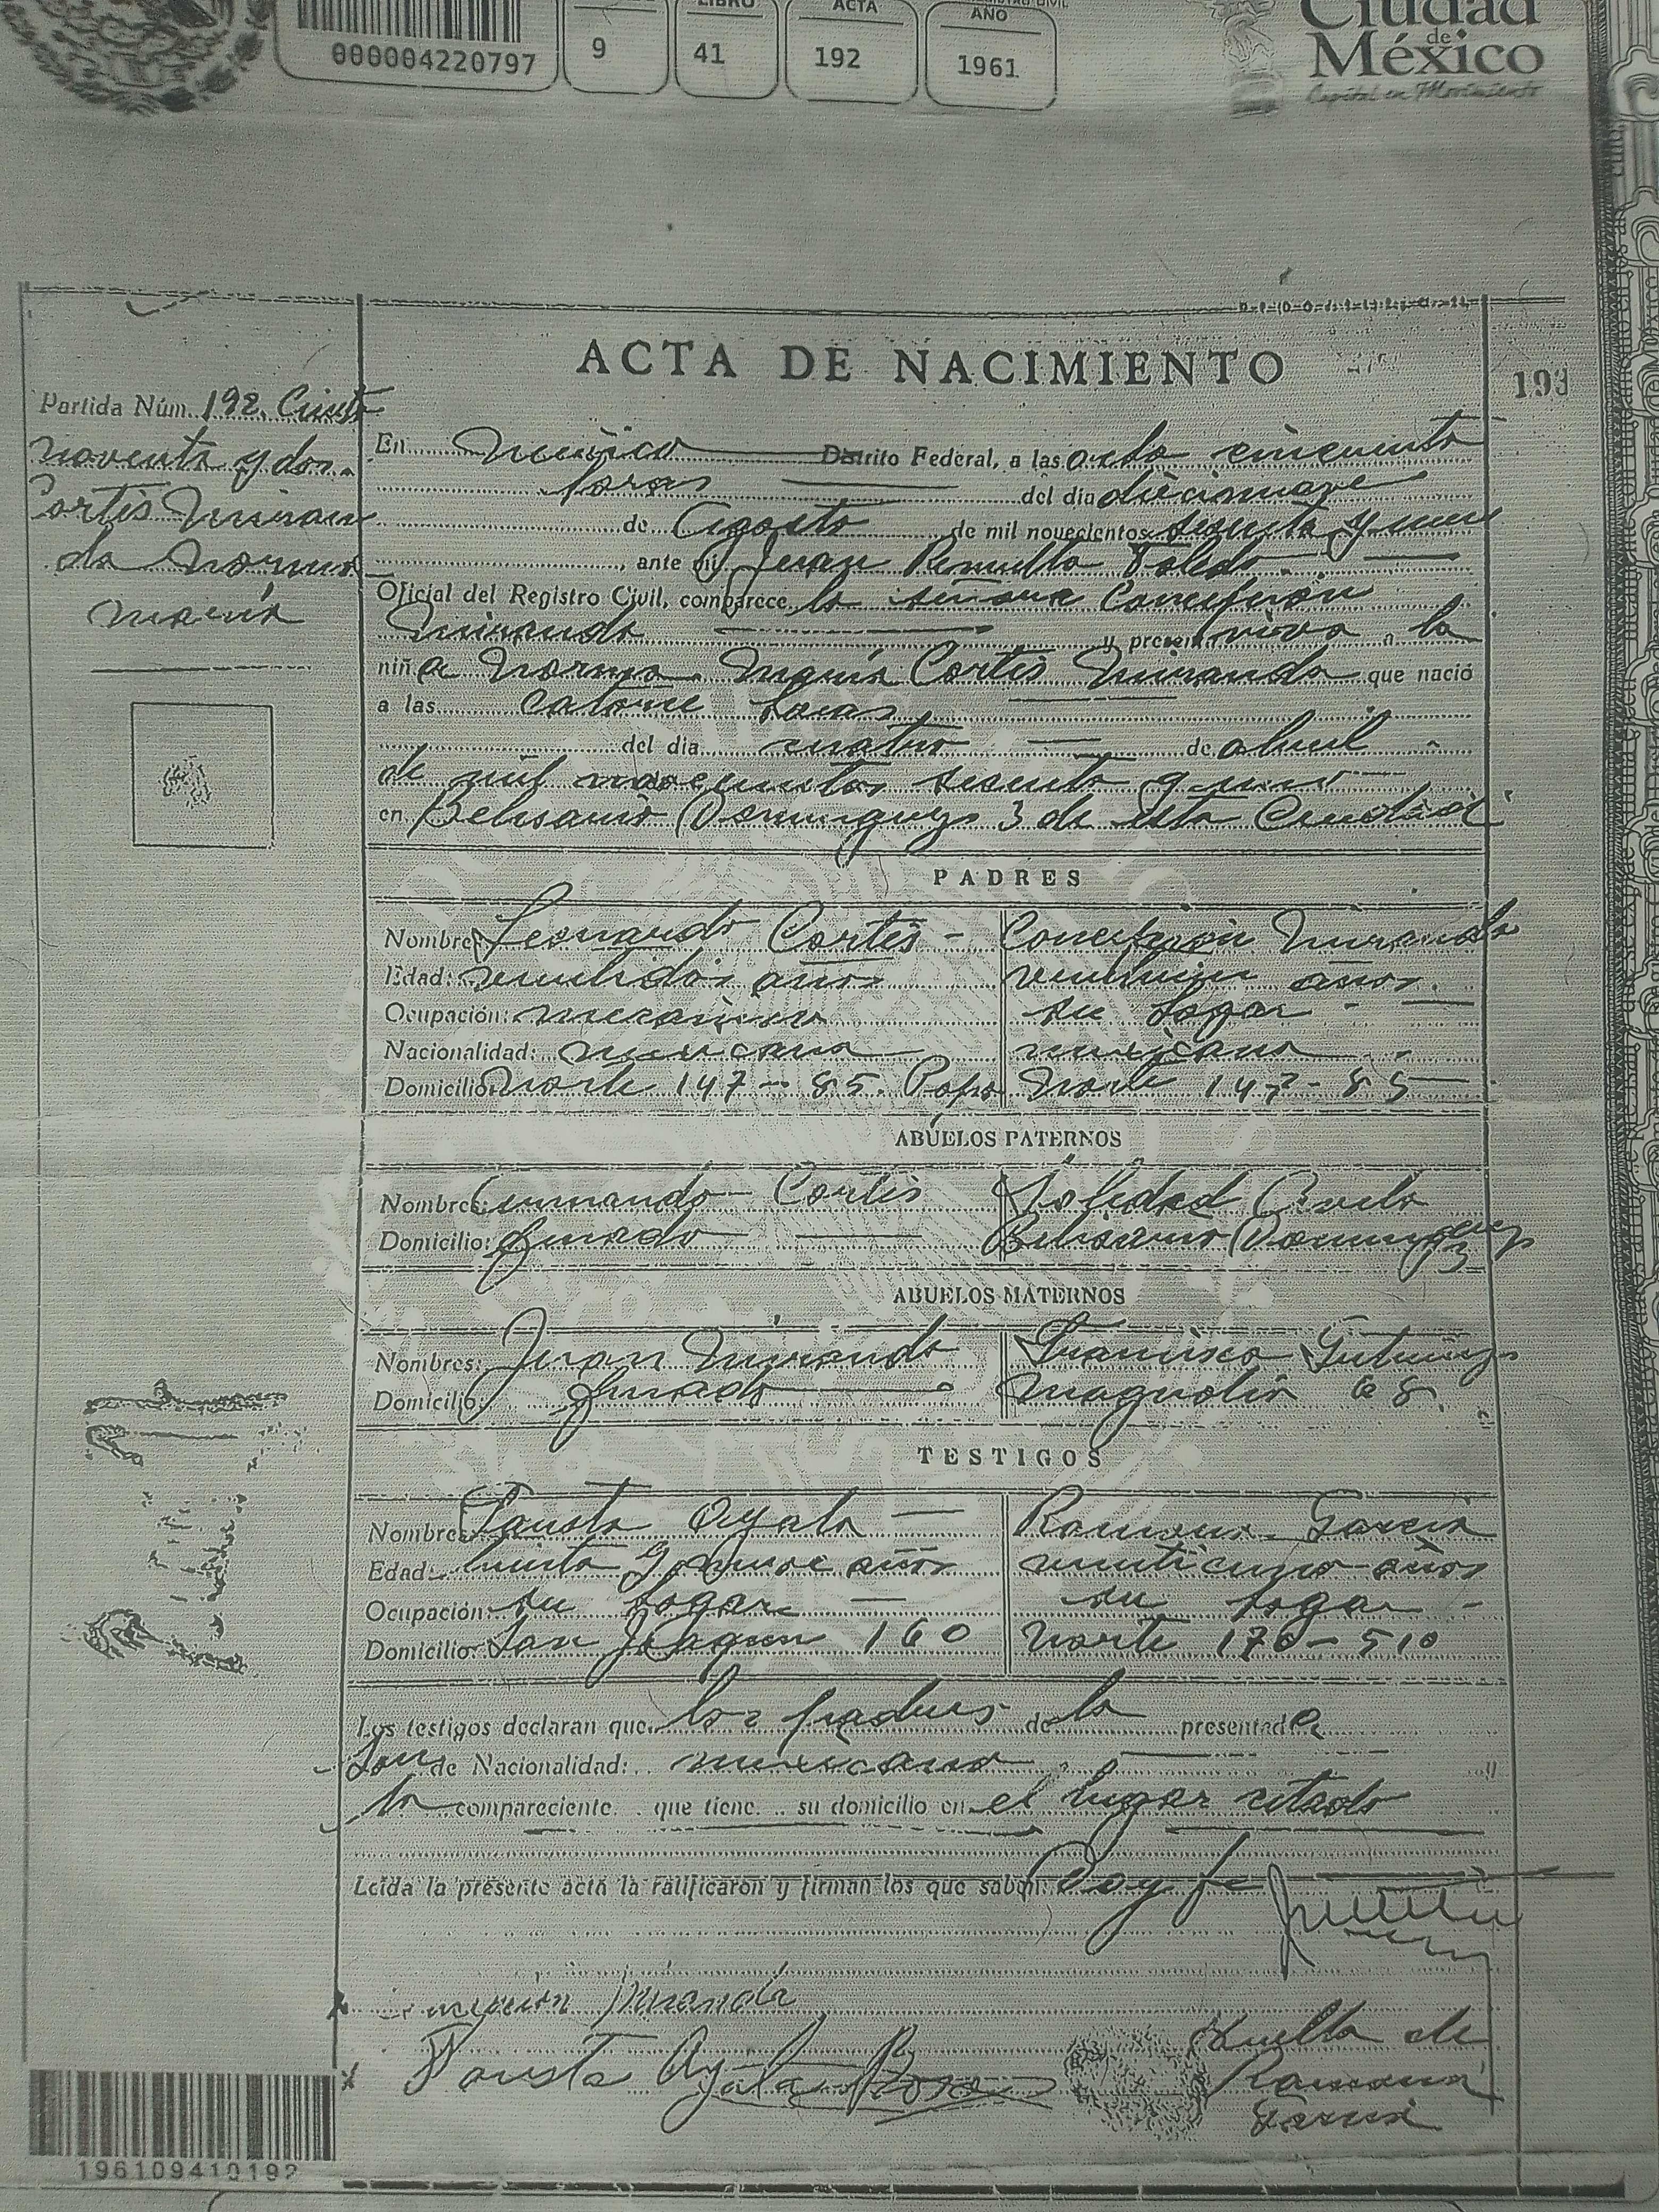 LIBRO ACTA AÑO
000004220797 9 41 192 1961
Ciudad
de
México
Capital en Movimiento
ACTA DE NACIMIENTO
193
Partida Núm. 192. Ciento
noventa y dos.
Cortés Miran
da Norma
María
En México Distrito Federal, a las ocho cincuenta
horas del dia diecinueve
de Agosto de mil novecientos sesenta y uno
, ante mi Juan Toledo
Oficial del Registro Civil, comparece la señora Concepción
Miranda y presenta viva a la
niña Norma María Cortés Miranda que nació
a las catorce horas
del dia cuatro de abril
de mil novecientos sesenta y uno
en Belisario Dominguez 3 de esta Ciudad
PADRES
Nombres Leonardo Cortés - Concepción Miranda
Edad: veintidos años veintiun años.
Ocupación: mecánico su hogar -
Nacionalidad: mexicana mexicana
Domicilio Norte 147-85. Popo Norte 147-85
ABUELOS PATERNOS
Nombres: Armando Cortés Soledad
Domicilio: finado Belisario Dominguez
3
ABUELOS MATERNOS
Nombres: Juan Miranda Francisca Gutierrez
Domicilio: finado Magnolia 68.
TESTIGOS
Nombres Fausta Ayala Ramona Garcia
Edad: treinta y nueve años veinticinco años
Ocupación: su hogar su hogar -
Domicilio: San Joaquin 160 Norte 170-510
Los testigos declaran que los padres de la presentada
son de Nacionalidad: mexicana
la compareciente que tiene su domicilio en el lugar citado
Leida la presente acta la ratificaron y firman los que saben. Doy fe
Concepción Miranda
Huella de
Fausta Ayala Ramona
Garcia
196109410192